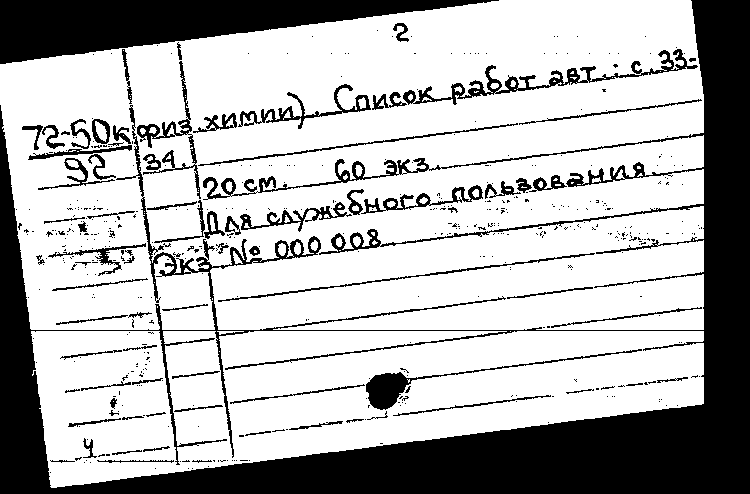 2
72-50к физ. химии). Список работ авт.: с. 33-
92 34.
20 см. 60 экз.
Для служебного пользования.
Экз. № 000 008
4